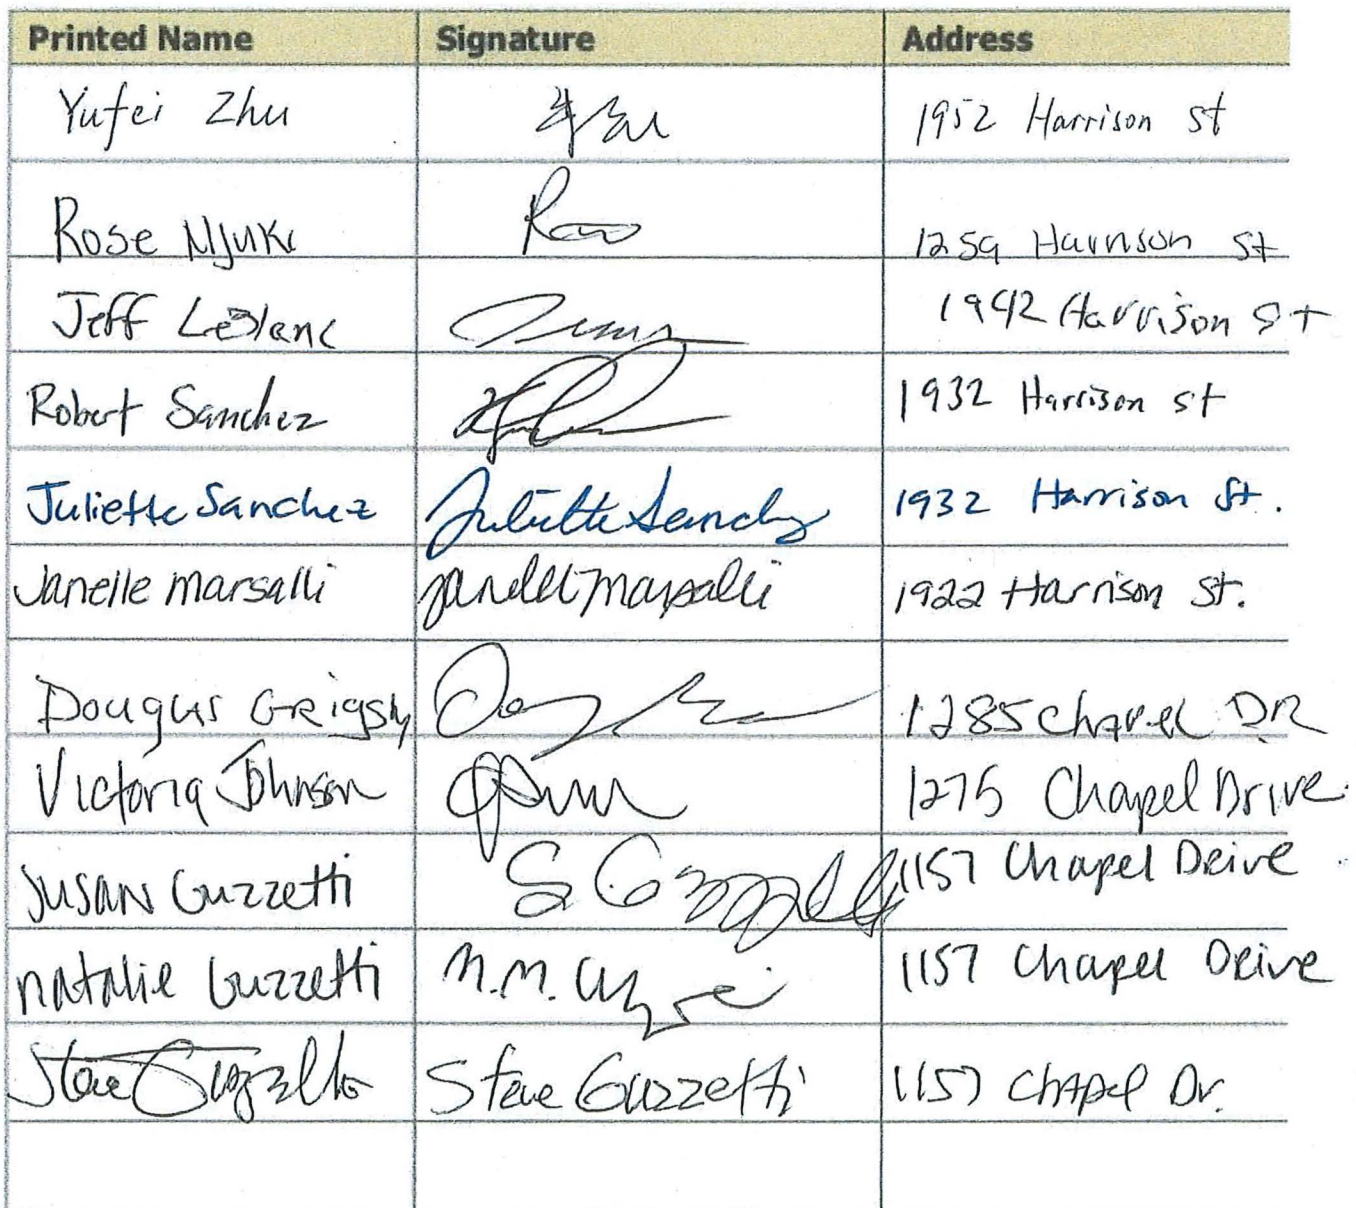 Printed Name Signature Address
Yufei Zhu 1952 Harrison St
Rose Njuki 1259 Harrison St
Jeff LeBlanc 1942 Harrison St
Robert Sanchez 1932 Harrison St
Juliette Sanchez Juliette Sanchez 1932 Harrison St.
Janelle Marsalli Janelle Marsalli 1922 Harrison St.
Dougus Grigsby 1285 Chapel DR
Victoria Johnson 1275 Chapel Drive
Susan Guzzetti S Guzzetti 1157 Chapel Drive
Natalie Guzzetti N.M. 1157 Chapel Drive
Steve Guzzetti Steve Guzzetti 1157 Chapel Dr.